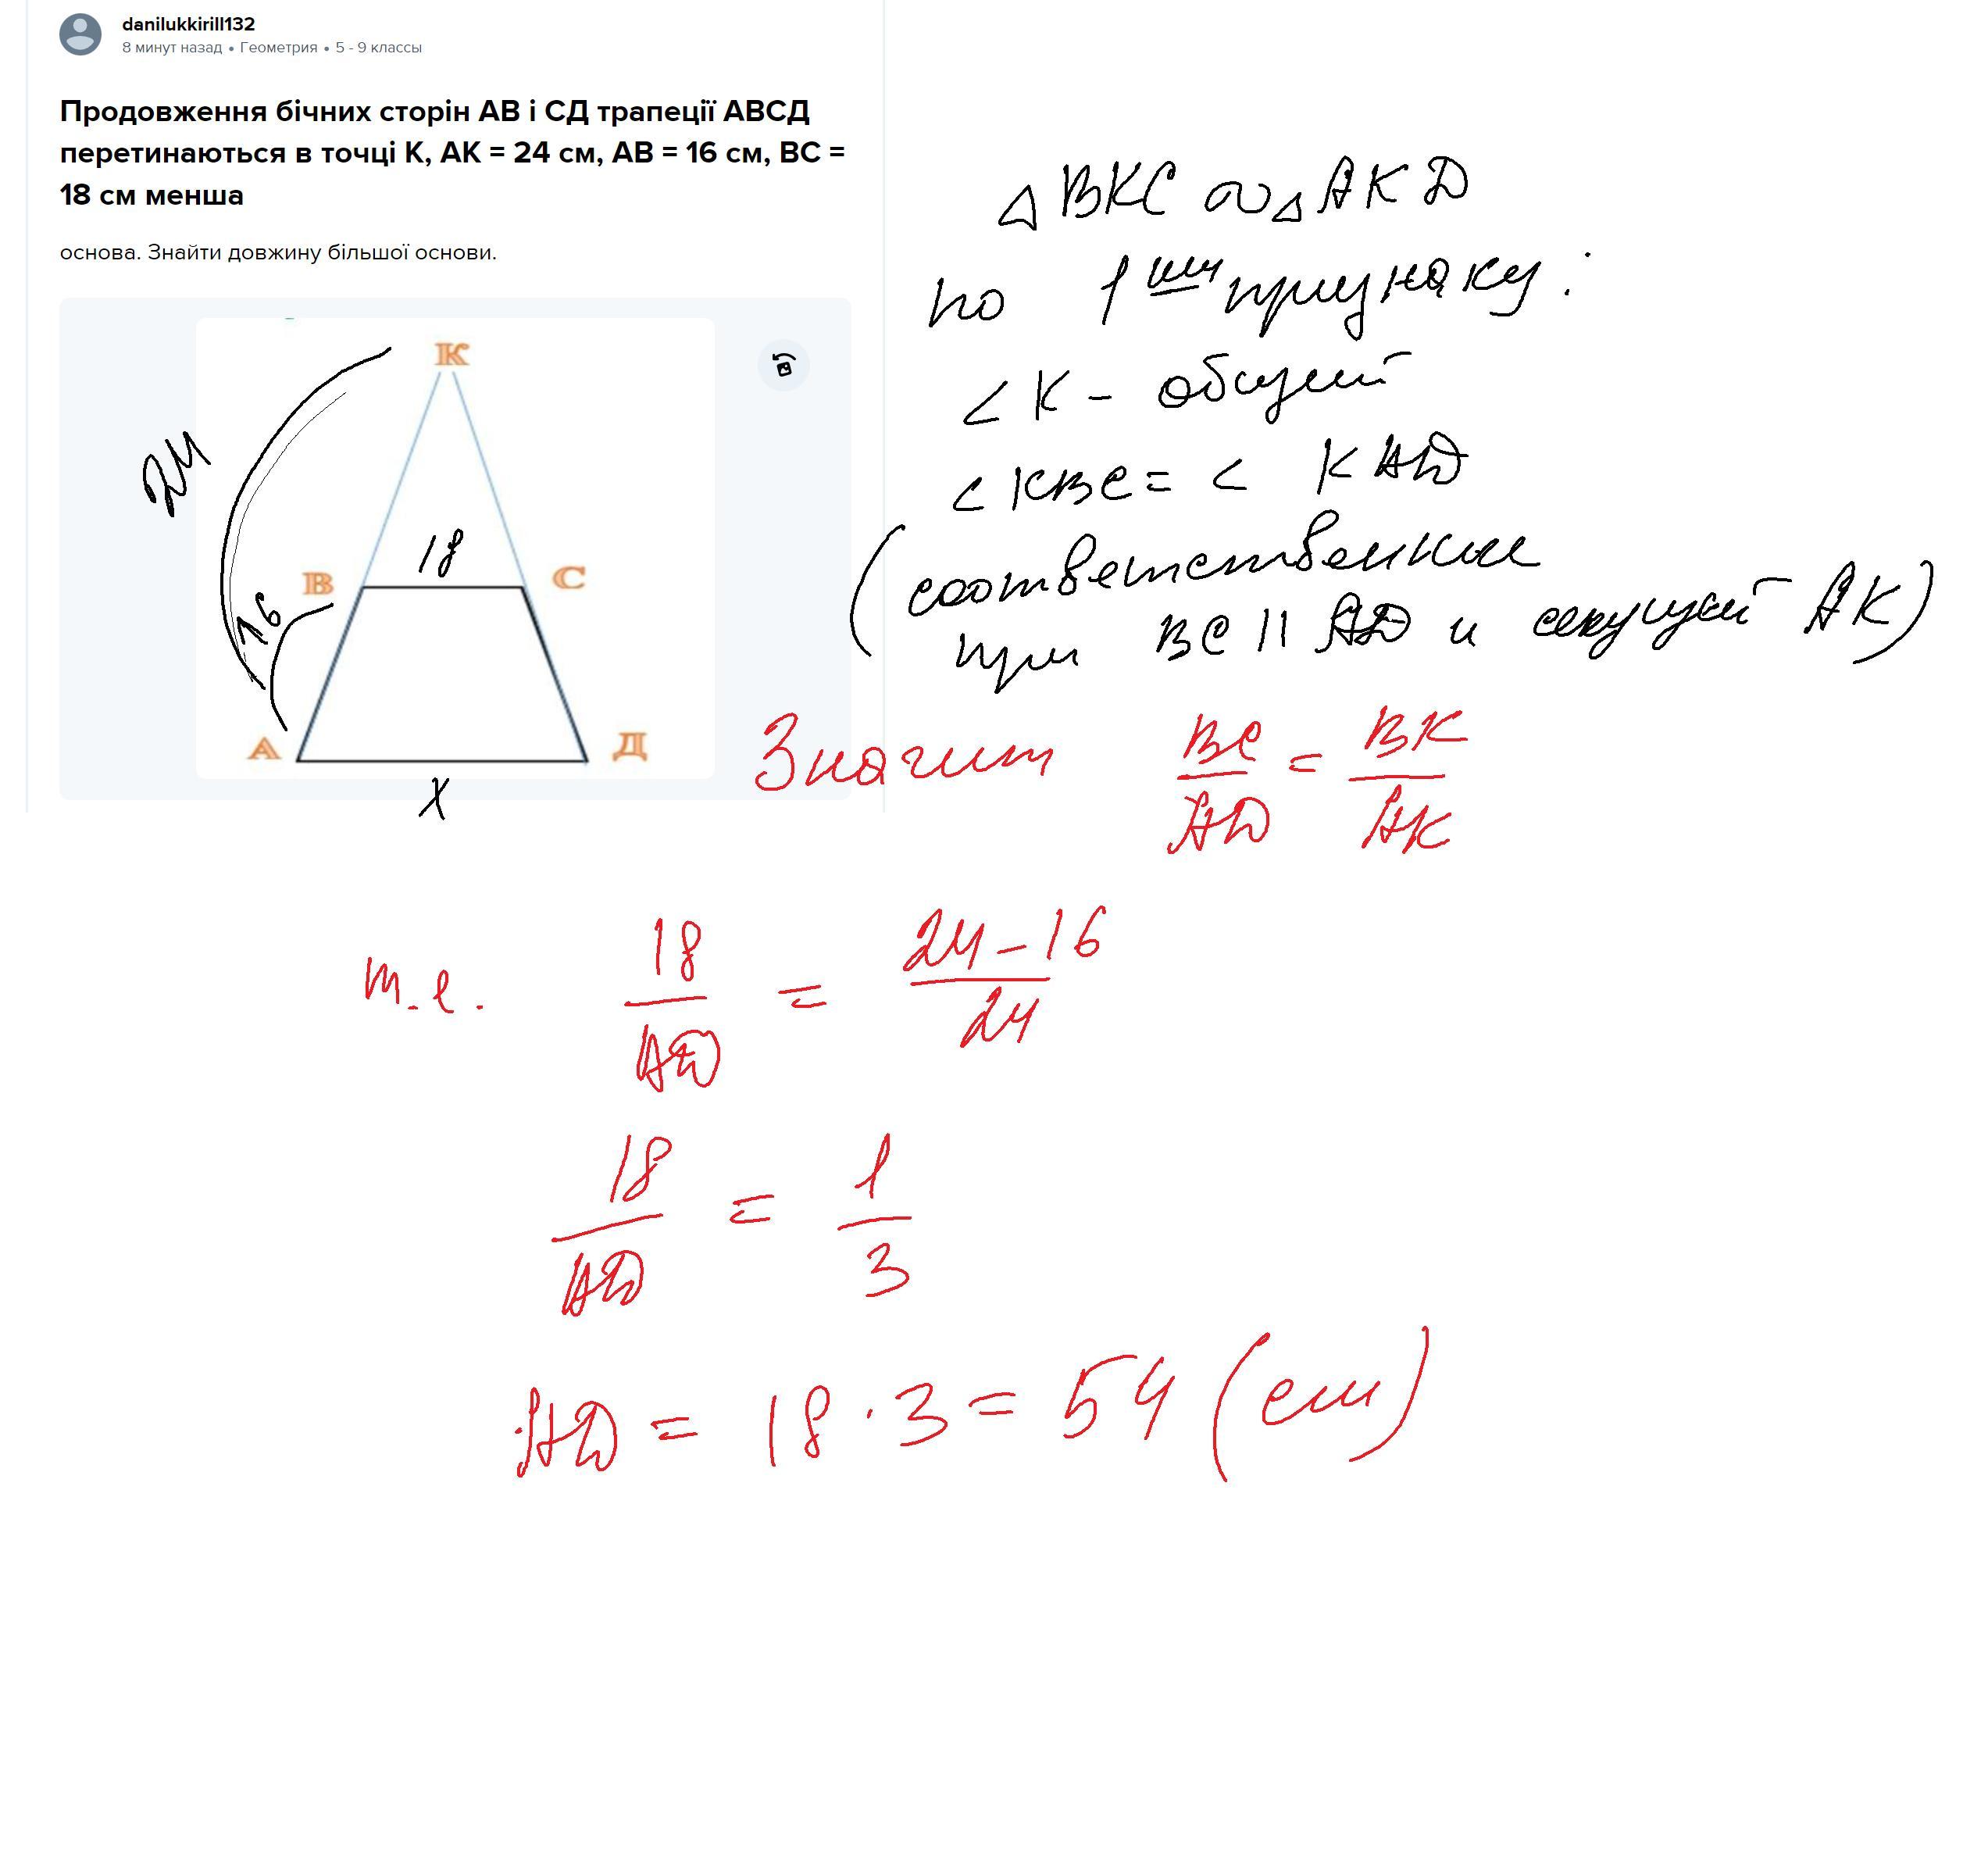 danilukkirill132
8 минут назад • Геометрия • 5 - 9 классы
Продовження бічних сторін АВ і СД трапеції АВСД
перетинаються в точці К, АК = 24 см, АВ = 16 см, ВС =
18 см менша
основа. Знайти довжину більшої основи.
К
24
18
В
С
16
А
Д
x
△ BKC ∾ △ AKD
по 1ому признаку :
∠ K - общий
∠ KBC = ∠ KAD
(соответственные
при BC || AD и секущей AK)
Значит BC/AD = BK/AK
т.е. 18/AD = 24-16/24
18/AD = 1/3
AD = 18 · 3 = 54 (см)